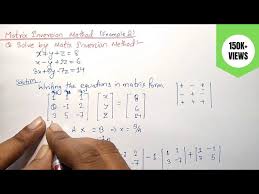 Matrix Inversion Method (Example 2)
Q Solve by Matrix Inversion Method:-
x+y+z=8
x-y+2z=6
3x+5y-7z=14
Solution
Writing the equations in matrix form
1 1 1 x 8 + - +
-1 2 y = 6 - + -
3 5 -7 z 14 + - +
A X = B
-1 1 2 + 1 -1
3 -7
150K+
VIEWS